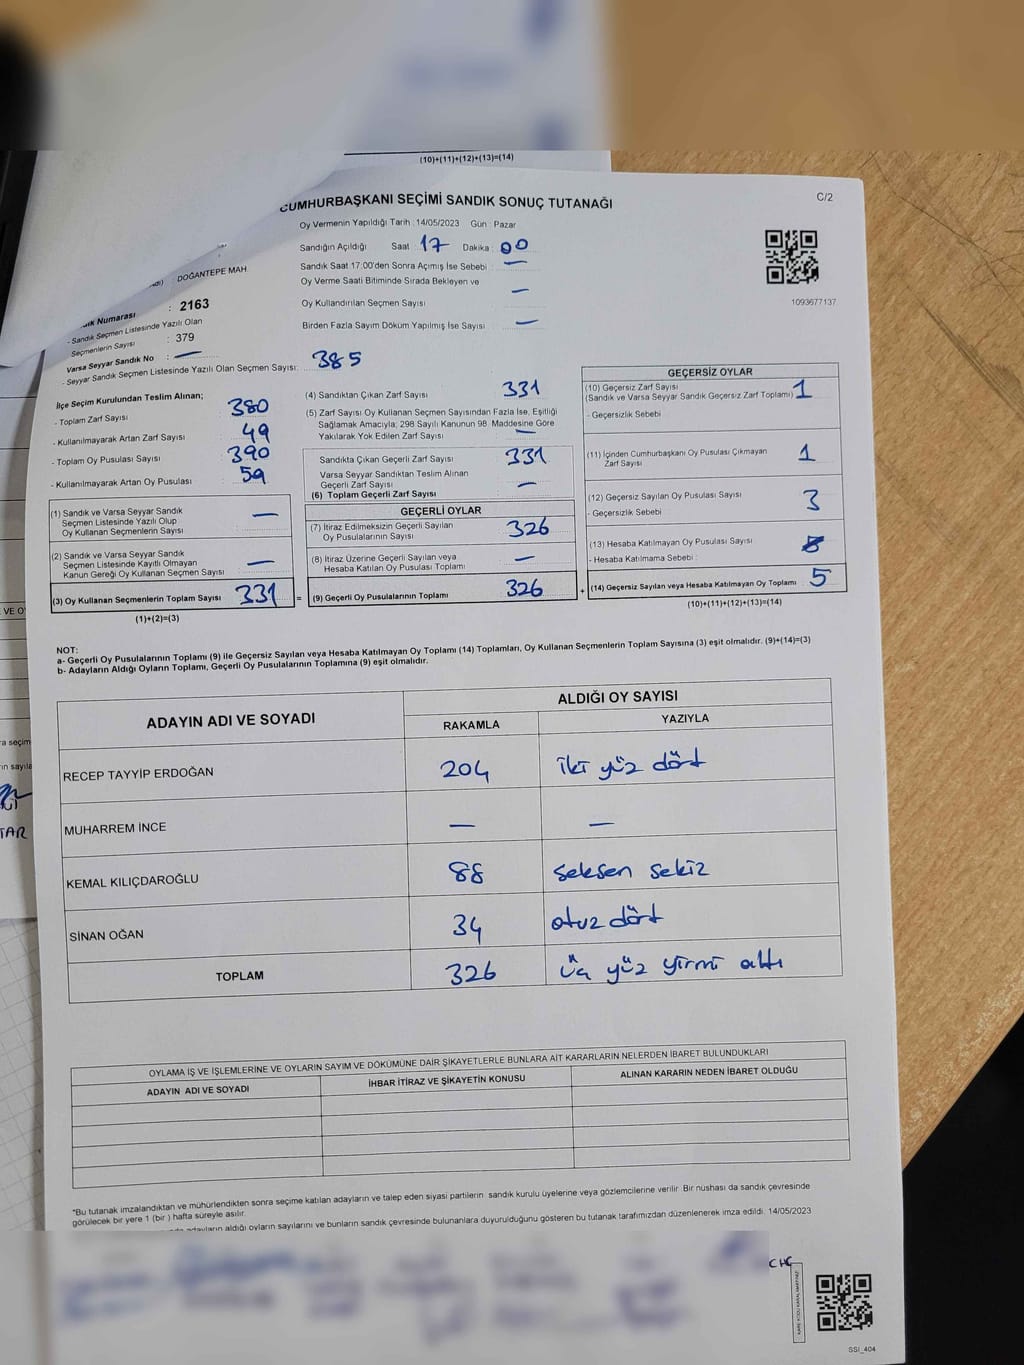 (10)+(11)+(12)+(13)=(14)
CUMHURBAŞKANI SEÇİMİ SANDIK SONUÇ TUTANAĞI
C/2
Oy Vermenin Yapıldığı Tarih : 14/05/2023 Gün : Pazar
Sandığın Açıldığı Saat : 17 Dakika : 00
Sandık Saat 17:00'den Sonra Açılmış İse Sebebi : —
Oy Verme Saati Bitiminde Sırada Bekleyen ve
Oy Kullandırılan Seçmen Sayısı —
Birden Fazla Sayım Döküm Yapılmış İse Sayısı —
1093677137
DOĞANTEPE MAH.
Numarası : 2163
- Sandık Seçmen Listesinde Yazılı Olan
Seçmenlerin Sayısı : 379
Varsa Seyyar Sandık No : —
- Seyyar Sandık Seçmen Listesinde Yazılı Olan Seçmen Sayısı: 385
İlçe Seçim Kurulundan Teslim Alınan;
- Toplam Zarf Sayısı 380
- Kullanılmayarak Artan Zarf Sayısı 49
- Toplam Oy Pusulası Sayısı 390
- Kullanılmayarak Artan Oy Pusulası 59
(1) Sandık ve Varsa Seyyar Sandık
Seçmen Listesinde Yazılı Olup
Oy Kullanan Seçmenlerin Sayısı —
(2) Sandık ve Varsa Seyyar Sandık
Seçmen Listesinde Kayıtlı Olmayan
Kanun Gereği Oy Kullanan Seçmen Sayısı —
(3) Oy Kullanan Seçmenlerin Toplam Sayısı 331 =
(1)+(2)=(3)
(4) Sandıktan Çıkan Zarf Sayısı 331
(5) Zarf Sayısı Oy Kullanan Seçmen Sayısından Fazla İse, Eşitliği
Sağlamak Amacıyla; 298 Sayılı Kanunun 98. Maddesine Göre
Yakılarak Yok Edilen Zarf Sayısı —
Sandıkta Çıkan Geçerli Zarf Sayısı 331
Varsa Seyyar Sandıktan Teslim Alınan
Geçerli Zarf Sayısı —
(6) Toplam Geçerli Zarf Sayısı
GEÇERLİ OYLAR
(7) İtiraz Edilmeksizin Geçerli Sayılan
Oy Pusulalarının Sayısı 326
(8) İtiraz Üzerine Geçerli Sayılan veya
Hesaba Katılan Oy Pusulası Toplamı —
(9) Geçerli Oy Pusulalarının Toplamı 326 +
GEÇERSİZ OYLAR
(10) Geçersiz Zarf Sayısı
(Sandık ve Varsa Seyyar Sandık Geçersiz Zarf Toplamı) 1
- Geçersizlik Sebebi :
(11) İçinden Cumhurbaşkanı Oy Pusulası Çıkmayan
Zarf Sayısı 1
(12) Geçersiz Sayılan Oy Pusulası Sayısı 3
- Geçersizlik Sebebi :
(13) Hesaba Katılmayan Oy Pusulası Sayısı
- Hesaba Katılmama Sebebi :
(14) Geçersiz Sayılan veya Hesaba Katılmayan Oy Toplamı 5
(10)+(11)+(12)+(13)=(14)
NOT:
a- Geçerli Oy Pusulalarının Toplamı (9) ile Geçersiz Sayılan veya Hesaba Katılmayan Oy Toplamı (14) Toplamları, Oy Kullanan Seçmenlerin Toplam Sayısına (3) eşit olmalıdır. (9)+(14)=(3)
b- Adayların Aldığı Oyların Toplamı, Geçerli Oy Pusulalarının Toplamına (9) eşit olmalıdır.
ADAYIN ADI VE SOYADI ALDIĞI OY SAYISI
RAKAMLA YAZIYLA
RECEP TAYYİP ERDOĞAN 204 iki yüz dört
MUHARREM İNCE — —
KEMAL KILIÇDAROĞLU 88 seksen sekiz
SİNAN OĞAN 34 otuz dört
TOPLAM 326 üç yüz yirmi altı
OYLAMA İŞ VE İŞLEMLERİNE VE OYLARIN SAYIM VE DÖKÜMÜNE DAİR ŞİKAYETLERLE BUNLARA AİT KARARLARIN NELERDEN İBARET BULUNDUKLARI
ADAYIN ADI VE SOYADI İHBAR İTİRAZ VE ŞİKAYETİN KONUSU ALINAN KARARIN NEDEN İBARET OLDUĞU
*Bu tutanak imzalandıktan ve mühürlendikten sonra seçime katılan adayların ve talep eden siyasi partilerin sandık kurulu üyelerine veya gözlemcilerine verilir. Bir nushası da sandık çevresinde
görülecek bir yere 1 (bir ) hafta süreyle asılır.
adayların aldığı oyların sayılarını ve bunların sandık çevresinde bulunanlara duyurulduğunu gösteren bu tutanak tarafımızdan düzenlenerek imza edildi. 14/05/2023
SSI_404